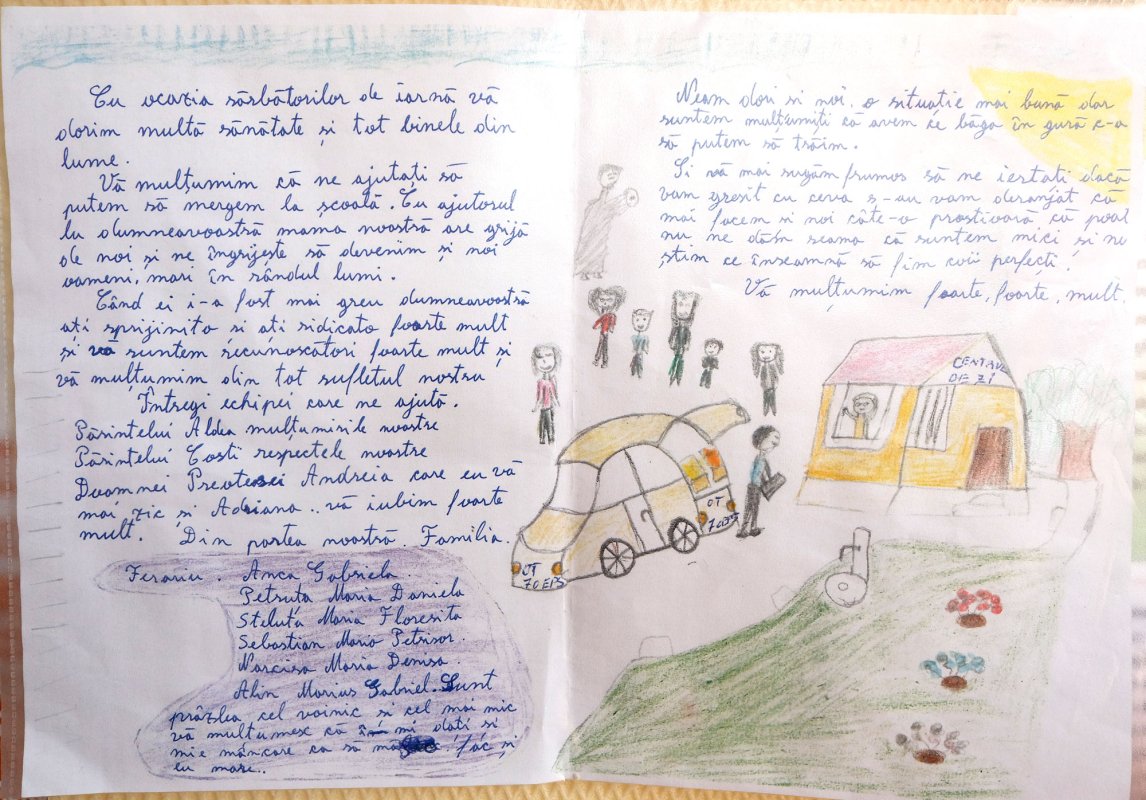 Cu ocazia sărbătorilor de iarnă vă
dorim multă sănătate și tot binele din
lume.
Vă mulțumim că ne ajutați să
putem să mergem la școală. Cu ajutorul
lu dumneavoastră mama noastră are grijă
de noi și ne îngrijește să devenim și noi
oameni, mari în rândul lumi.
Când ei i-a fost mai greu dumneavoastră
ați sprijinito si ati ridicato foarte mult
și vă suntem recunoscători foarte mult și
vă mulțumim din tot sufletul nostru
Întregi echipei care ne ajută.
Părintelui Aldea mulțumirile noastre
Părintelui Costi respectele noastre
Doamnei Preotesei Andreia care eu vă
mai zic si Adriana.. vă iubim foarte
mult. Din partea noastră. Familia.
Ferariu. Anca Gabriela.
Petruta Maria Daniela
Steluta Maria Floresita
Sebastian Mario Petrisor.
Narcisa Maria Denisa.
Alin Marius Gabriel. Sunt
prâzlea cel voinic si cel mai mic
vă multumesc ca îmi dati si
mie mâncare ca sa mă fac și
eu mare..
Neam dori si noi. o situație mai bună dar
suntem mulțumiți că avem ce băga în gură c-a
să putem să trăim.
Si vă mai rugăm frumos să ne iertati dacă
vam gresit cu ceva s-au vam deranjăt că
mai facem si noi câte-o prostioară că poal
nu ne dăm seama că suntem mici si nu
știm ce înseamnă să fim cuii perfecți!
Vă mulțumim foarte, foarte, mult.
CENTRUL
DE ZI
OT
70EPS
OT
70EPS